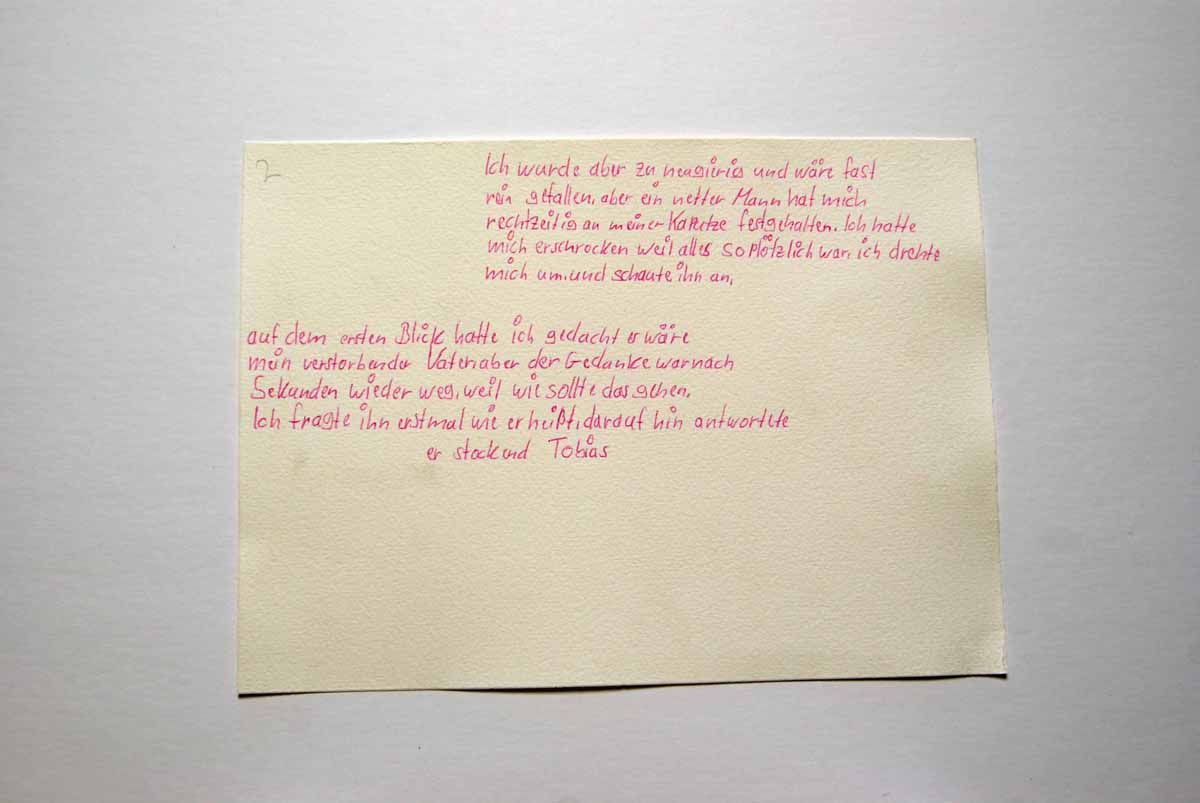 2
Ich wurde aber zu neugierig und wäre fast
rein gefallen, aber ein netter Mann hat mich
rechtzeitig an meiner Kaputze festgehalten. Ich hatte
mich erschrocken weil alles so plötzlich war, ich drehte
mich um und schaute ihn an,
auf dem ersten Blick hatte ich gedacht er wäre
mein verstorbender Vater, aber der Gedanke war nach
Sekunden wieder weg, weil wie sollte das gehen.
Ich fragte ihn erstmal wie er heißt, darauf hin antwortete
er stockend Tobias